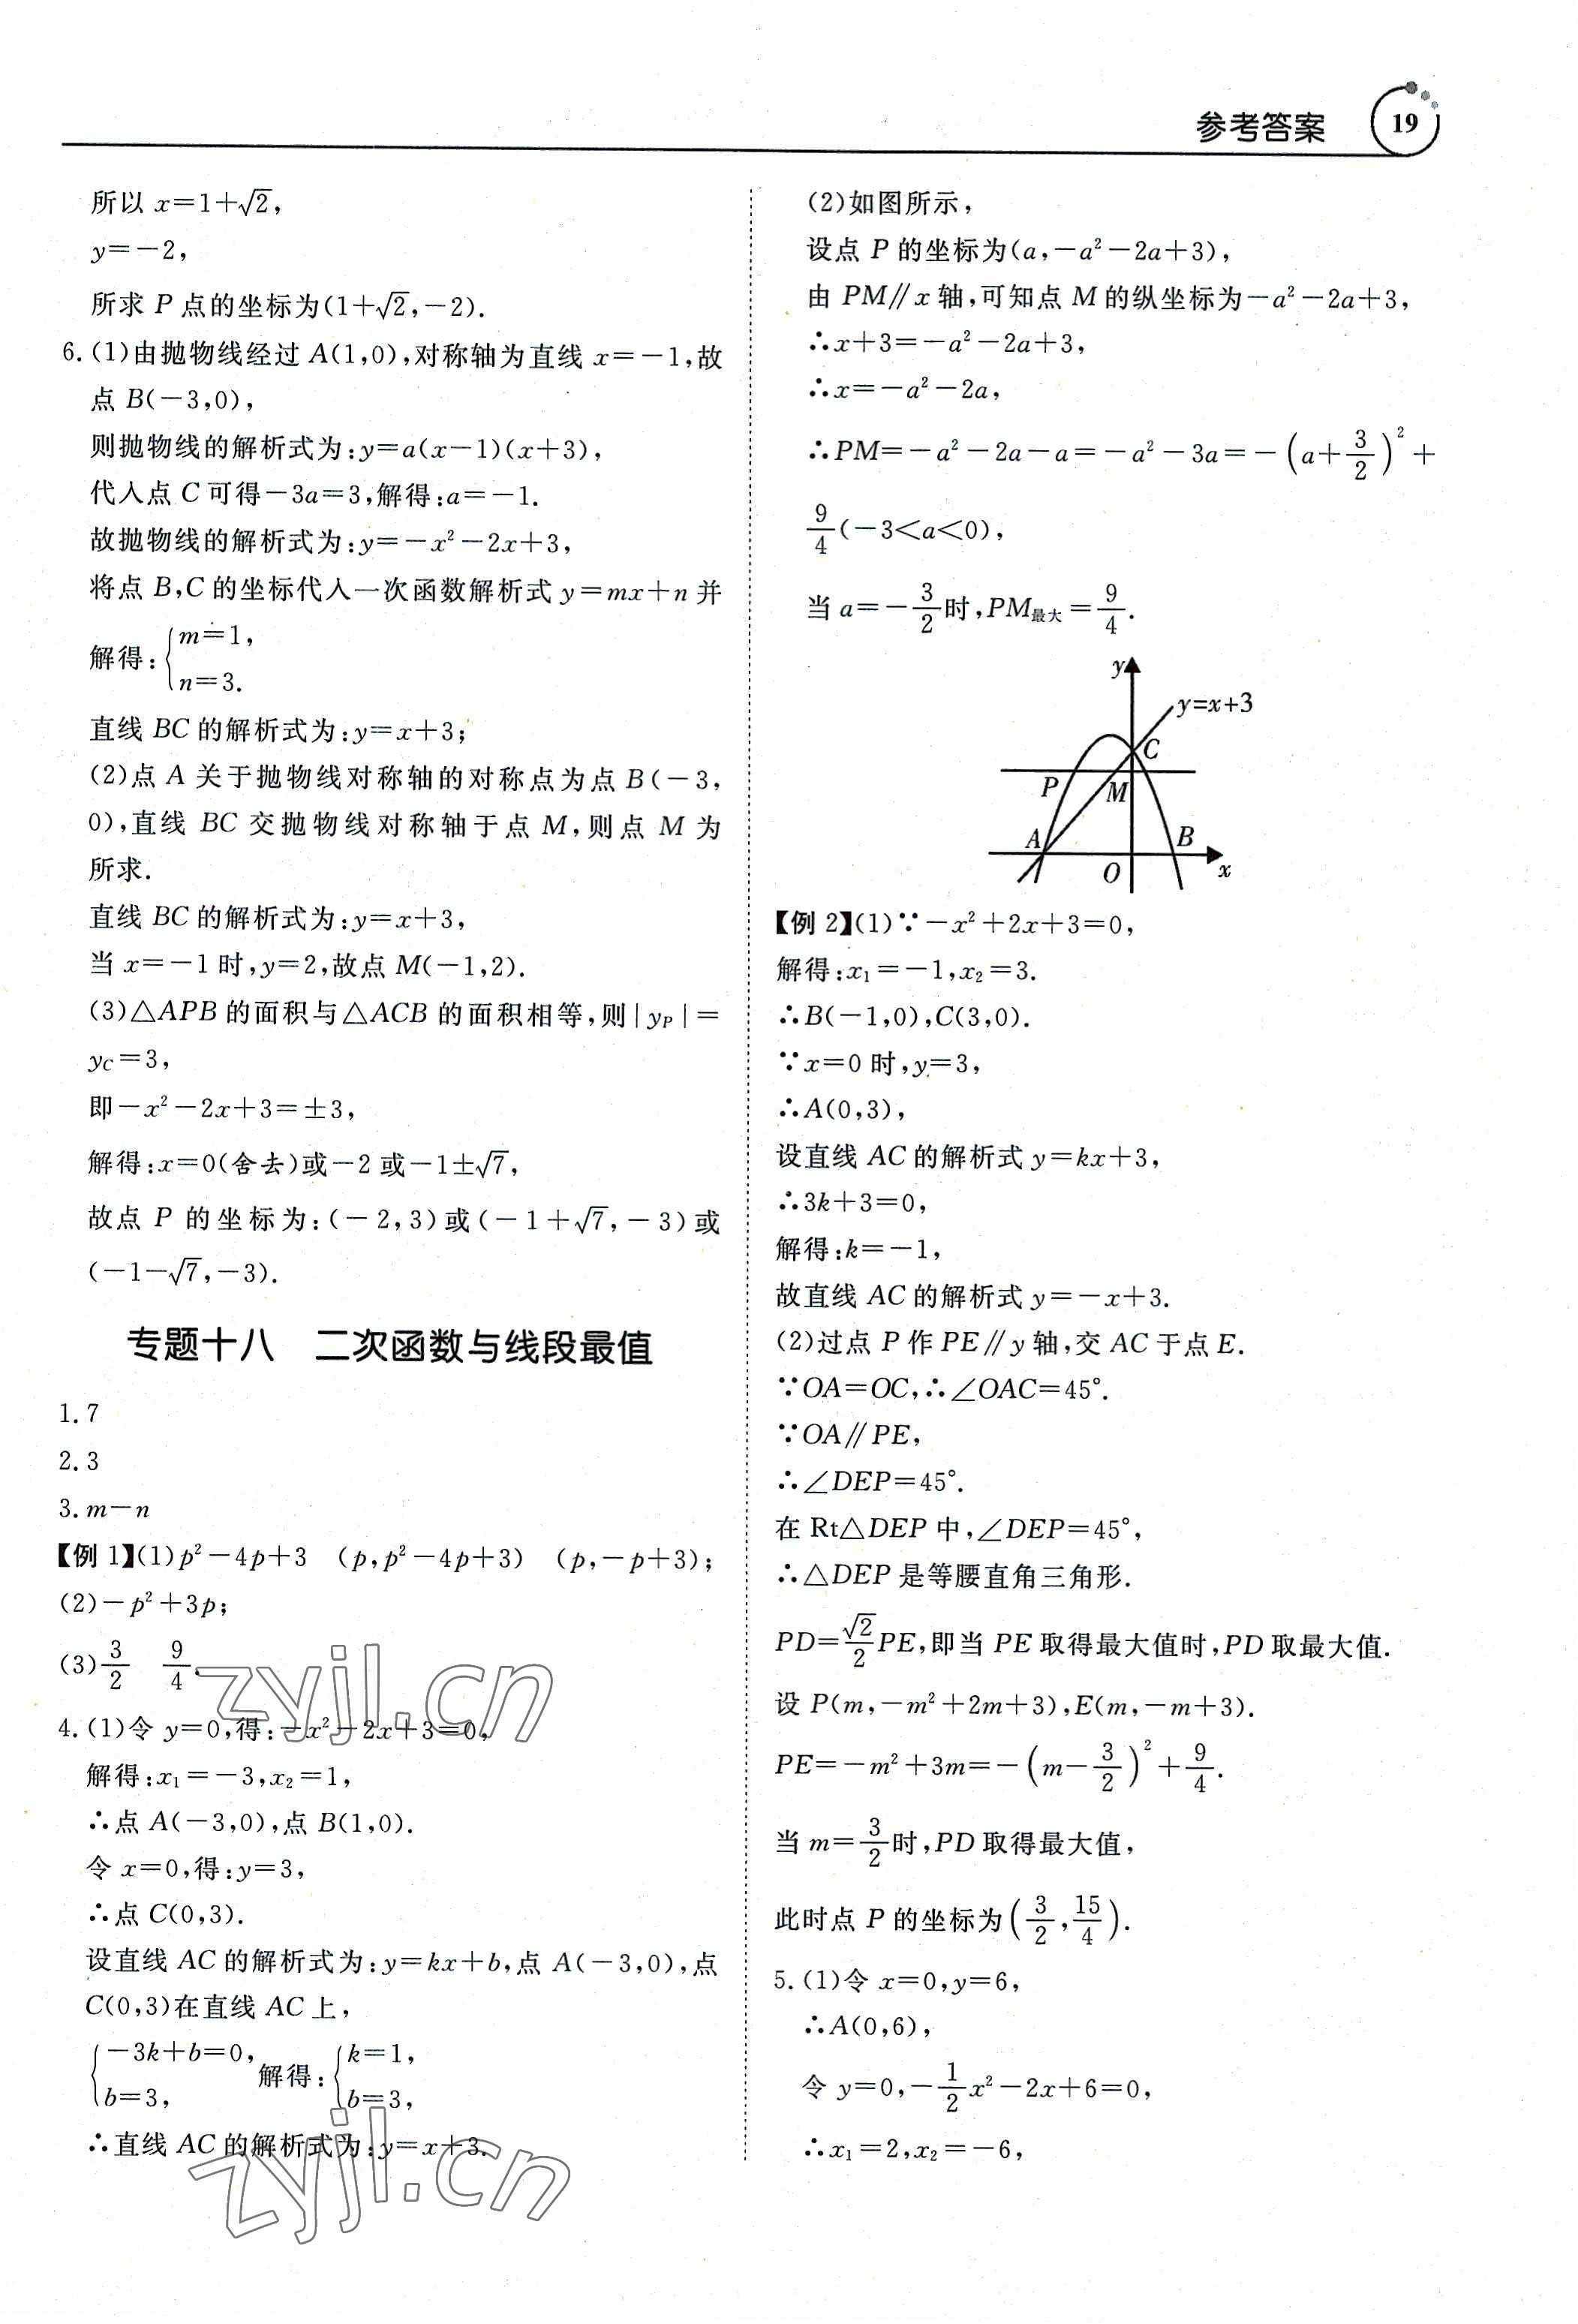 参考答案 19
所以 x=1+√2,
y=-2,
所求 P 点的坐标为(1+√2,-2).
6.(1)由抛物线经过 A(1,0),对称轴为直线 x=-1,故
点 B(-3,0),
则抛物线的解析式为:y=a(x-1)(x+3),
代入点 C 可得-3a=3,解得:a=-1.
故抛物线的解析式为:y=-x²-2x+3,
将点 B,C 的坐标代入一次函数解析式 y=mx+n 并
解得:{m=1,
n=3.
直线 BC 的解析式为:y=x+3;
(2)点 A 关于抛物线对称轴的对称点为点 B(-3,
0),直线 BC 交抛物线对称轴于点 M,则点 M 为
所求.
直线 BC 的解析式为:y=x+3,
当 x=-1 时,y=2,故点 M(-1,2).
(3)△APB 的面积与△ACB 的面积相等,则|yP|=
yC=3,
即-x²-2x+3=±3,
解得:x=0(舍去)或-2 或-1±√7,
故点 P 的坐标为:(-2,3)或(-1+√7,-3)或
(-1-√7,-3).
专题十八 二次函数与线段最值
1.7
2.3
3.m-n
【例 1】(1)p²-4p+3 (p,p²-4p+3) (p,-p+3);
(2)-p²+3p;
(3)3/2 9/4.
4.(1)令 y=0,得:-x²-2x+3=0,
解得:x₁=-3,x₂=1,
∴点 A(-3,0),点 B(1,0).
令 x=0,得:y=3,
∴点 C(0,3).
设直线 AC 的解析式为:y=kx+b,点 A(-3,0),点
C(0,3)在直线 AC 上,
{-3k+b=0, b=3, 解得:{k=1, b=3,
∴直线 AC 的解析式为:y=x+3.
(2)如图所示,
设点 P 的坐标为(a,-a²-2a+3),
由 PM∥x 轴,可知点 M 的纵坐标为-a²-2a+3,
∴x+3=-a²-2a+3,
∴x=-a²-2a,
∴PM=-a²-2a-a=-a²-3a=-(a+3/2)²+
9/4(-3<a<0),
当 a=-3/2时,PM最大=9/4.
y
y=x+3
C
P M
A B
O x
【例 2】(1)∵-x²+2x+3=0,
解得:x₁=-1,x₂=3.
∴B(-1,0),C(3,0).
∵x=0 时,y=3,
∴A(0,3),
设直线 AC 的解析式 y=kx+3,
∴3k+3=0,
解得:k=-1,
故直线 AC 的解析式 y=-x+3.
(2)过点 P 作 PE∥y 轴,交 AC 于点 E.
∵OA=OC,∴∠OAC=45°.
∵OA∥PE,
∴∠DEP=45°.
在 Rt△DEP 中,∠DEP=45°,
∴△DEP 是等腰直角三角形.
PD=√2/2PE,即当 PE 取得最大值时,PD 取最大值.
设 P(m,-m²+2m+3),E(m,-m+3).
PE=-m²+3m=-(m-3/2)²+9/4.
当 m=3/2时,PD 取得最大值,
此时点 P 的坐标为(3/2,15/4).
5.(1)令 x=0,y=6,
∴A(0,6),
令 y=0,-1/2x²-2x+6=0,
∴x₁=2,x₂=-6,
zyjl.cn
zyjl.cn